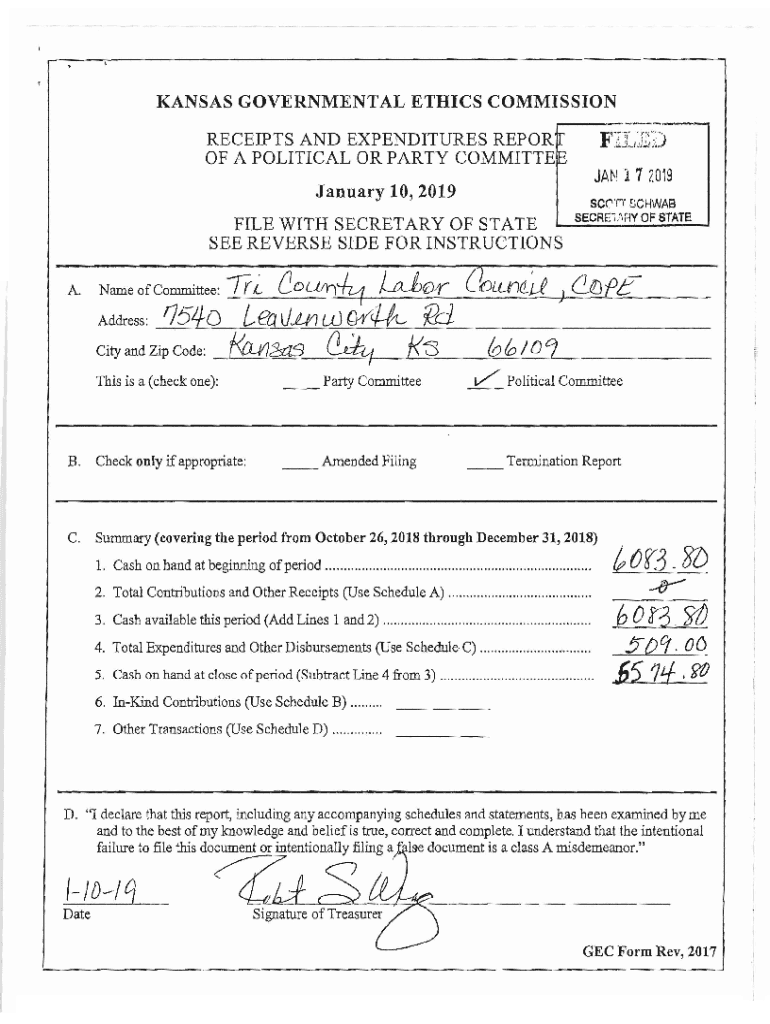 KANSAS GOVERNMENTAL ETHICS COMMISSION
RECEIPTS AND EXPENDITURES REPORT
OF A POLITICAL OR PARTY COMMITTEE
January 10, 2019
FILE WITH SECRETARY OF STATE
SEE REVERSE SIDE FOR INSTRUCTIONS
FILED
JAN 17 2019
SCOTT SCHWAB
SECRETARY OF STATE
A. Name of Committee: Tri County Labor Council, COPE
Address: 7540 Leavenworth Rd
City and Zip Code: Kansas City KS 66109
This is a (check one): ___ Party Committee ✓ Political Committee
B. Check only if appropriate: ____ Amended Filing ____ Termination Report
C. Summary (covering the period from October 26, 2018 through December 31, 2018)
1. Cash on hand at beginning of period ........ 6083.80
2. Total Contributions and Other Receipts (Use Schedule A) ........ 0
3. Cash available this period (Add Lines 1 and 2) ........ 6083 80
4. Total Expenditures and Other Disbursements (Use Schedule C) ........ 509.00
5. Cash on hand at close of period (Subtract Line 4 from 3) ........ 5574.80
6. In-Kind Contributions (Use Schedule B) ......... ________
7. Other Transactions (Use Schedule D) .............. ________
D. "I declare that this report, including any accompanying schedules and statements, has been examined by me
and to the best of my knowledge and belief is true, correct and complete. I understand that the intentional
failure to file this document or intentionally filing a false document is a class A misdemeanor."
1-10-19
Date Signature of Treasurer
GEC Form Rev, 2017